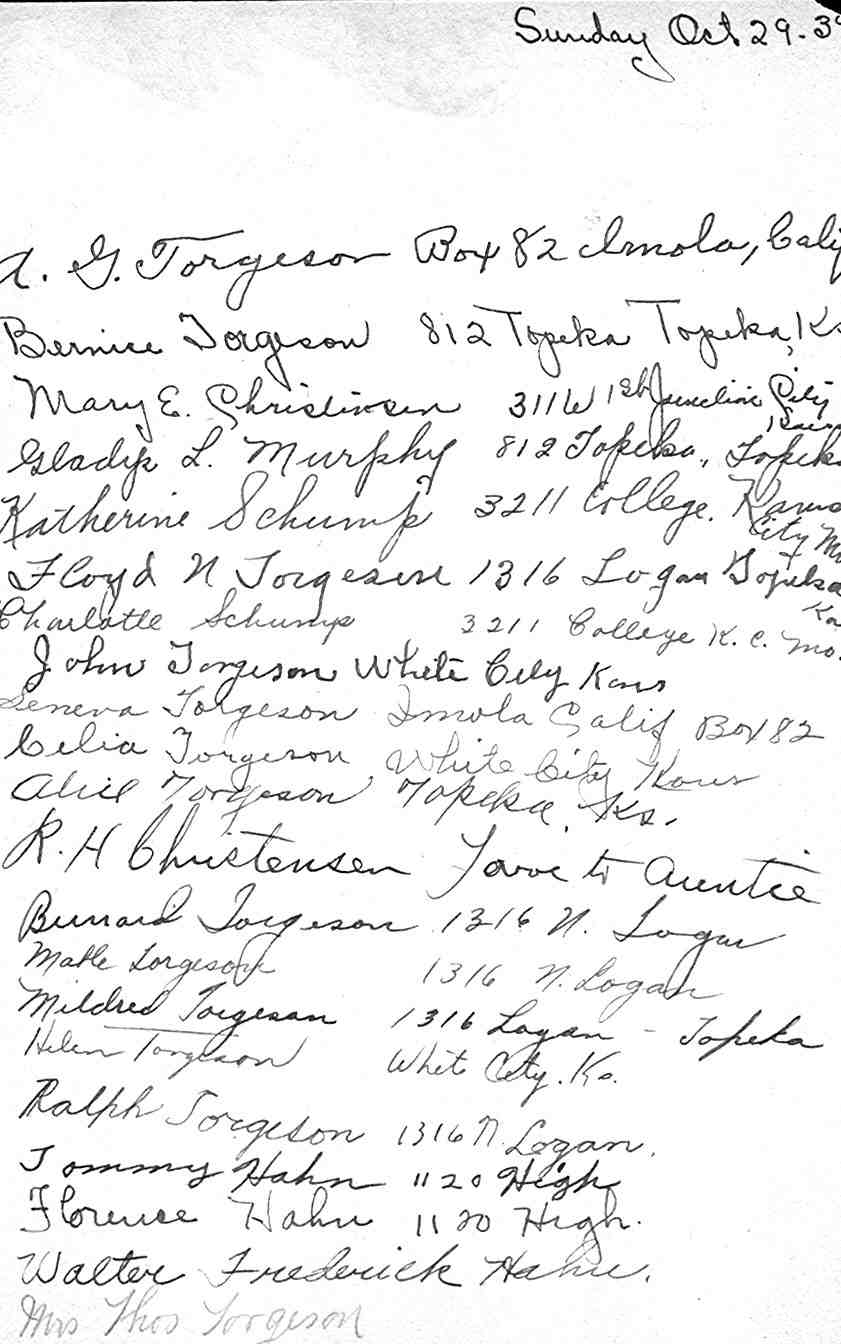 Sunday Oct 29-39
A. G. Torgeson Box 82 Imola, Calif
Bernice Torgeson 812 Topeka Topeka, Ks
Mary E. Christensen 311 W 1st Junction City
Kans
Gladys L. Murphy 812 Topeka, Topeka
Katherine Schump 3211 College. Kans
City Mo
Floyd N Torgeson 1316 Logan Topeka
Ka
Charlotte Schump 3211 College K. C. Mo.
John Torgeson White City Kans
Geneva Torgeson Imola Calif Box 82
Celia Torgeson White City Kans
Alice Torgeson Topeka, Ks.
R. H Christensen Love to Auntie
Bernard Torgeson 1316 N. Logan
Mable Torgeson 1316 N. Logan
Mildred Torgeson 1316 Logan - Topeka
Helen Torgeson Whit City. Ks.
Ralph Torgeson 1316 N. Logan.
Tommy Hahn 1120 High
Florence Hahn 1120 High.
Walter Frederick Hahn.
Mrs Thos Torgeson